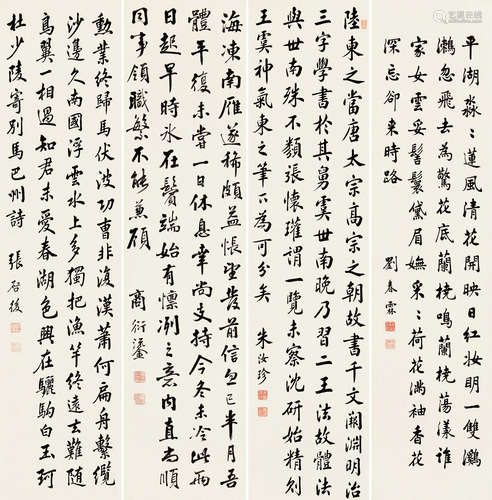 平湖淼〻蓮風清花開映日紅妝明一雙鸂
鶒忽飛去為驚花底蘭橈鳴蘭橈蕩漾誰
家女雲妥髻鬟黛眉嫵采〻荷花滿袖香花
深忘卻來時路
劉春霖
陸東之當唐太宗高宗之朝故書千文闕淵明治
三字學書於其舅虞世南晚乃習二王法故體法
與世南殊不類張懷瓘謂一覽未察沈研始精剡
王虞神氣東之筆下為可分矣
朱汝珍
海凍南雁遂稀頗益悵望發前信忽已半月吾
體平復未嘗一日休息幸尚支持今冬未冷此兩
日起早時冰在鬢端始有懍冽之意內直為順
同事領職繁不能兼顧
商衍鎏
勳業終歸馬伏波功曹非復漢蕭何扁舟繫纜
沙邊久南國浮雲水上多獨把漁竿終遠去難隨
鳥翼一相過知君未愛春湖色興在驪駒白玉珂
杜少陵寄別馬巴州詩
張啓後